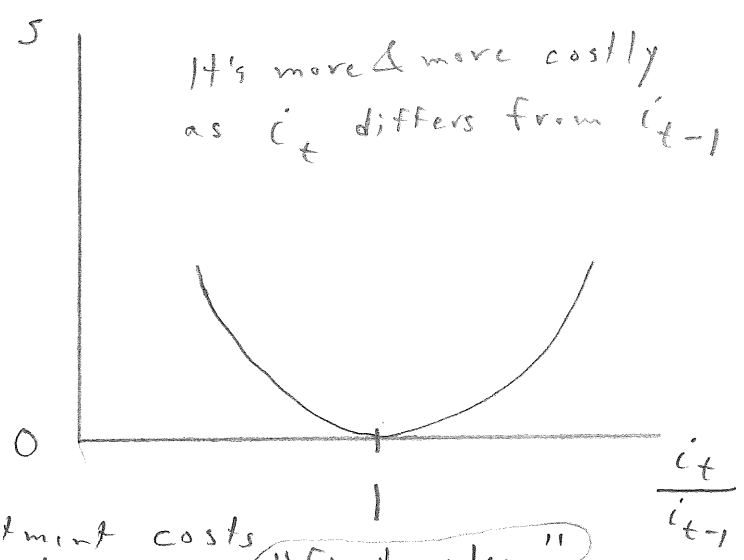 S
It's more & more costly
as i_t differs from i_{t-1}
0
1
i_t / i_{t-1}
costs